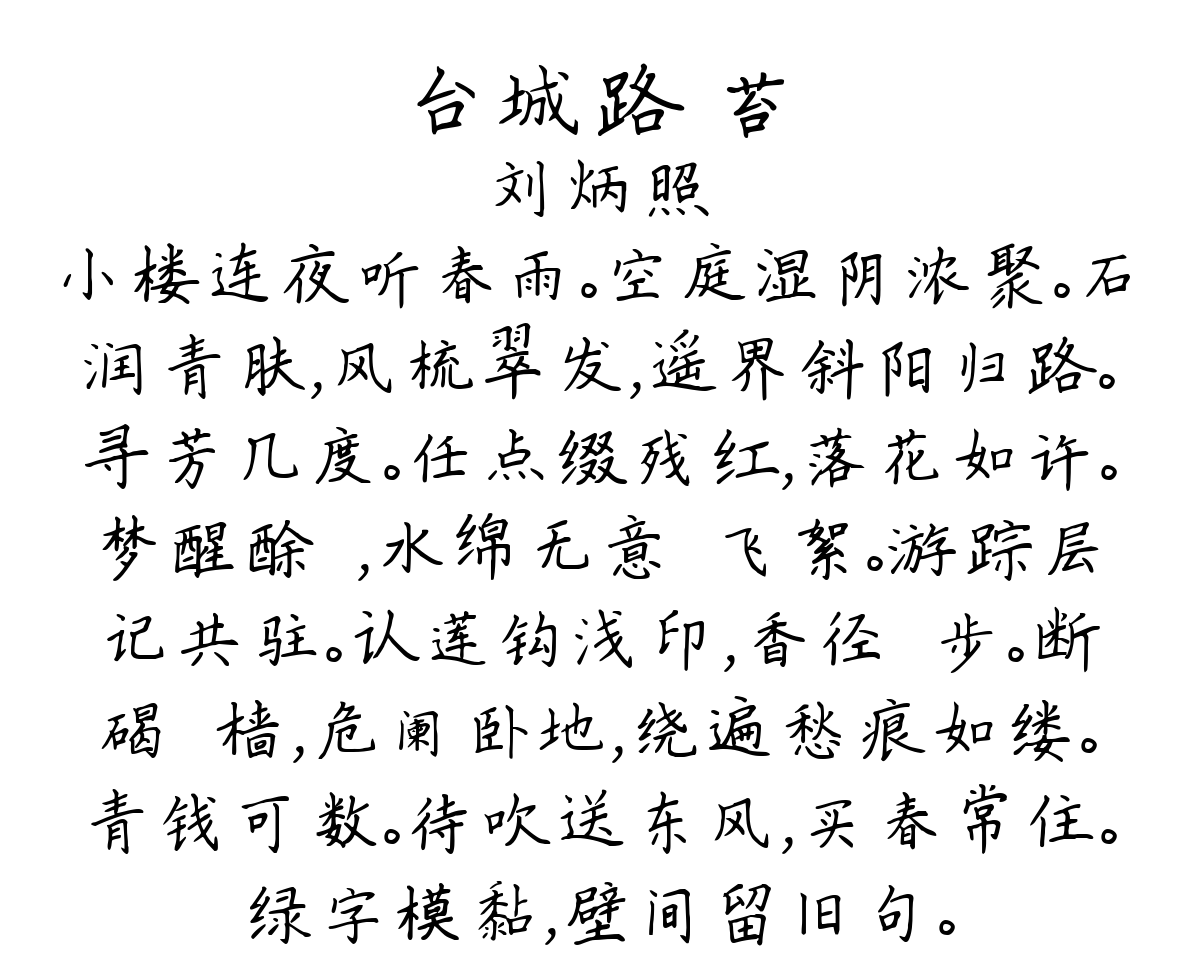 台城路 苔
刘炳照
小楼连夜听春雨。空庭湿阴浓聚。石
润青肤,风梳翠发,遥界斜阳归路。
寻芳几度。任点缀残红,落花如许。
梦醒酴 ,水绵无意 飞絮。游踪层
记共驻。认莲钩浅印,香径 步。断
碣 樯,危阑卧地,绕遍愁痕如缕。
青钱可数。待吹送东风,买春常住。
绿字模黏,壁间留旧句。